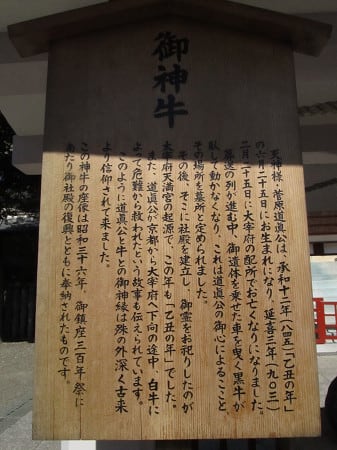 御神牛
天神様・菅原道真公は、承和十二年(八四五)「乙丑の年」
の六月二十五日にお生まれになり、延喜三年(九〇三)
二月二十五日に大宰府の配所でお亡くなりになりました。
葬送の列が進む中、御遺体を乗せた車を曳く黒牛が
臥して動かなくなり、これは道真公の御心によることと
その場所を墓所と定められました。
その後、そこに社殿を建立し、御霊をお祀りしたのが
太宰府天満宮の起源で、この年も「乙丑の年」でした。
また、道真公が京都から大宰府へ下向の途中、白牛に
よって危難から救われたという故事も伝えられています。
このように道真公と牛との御神縁は殊の外深く古来
より信仰されて来ました。
この神牛の座像は昭和三十六年、御鎮座三百年祭に
あたり御社殿の復興とともに奉納されたものです。